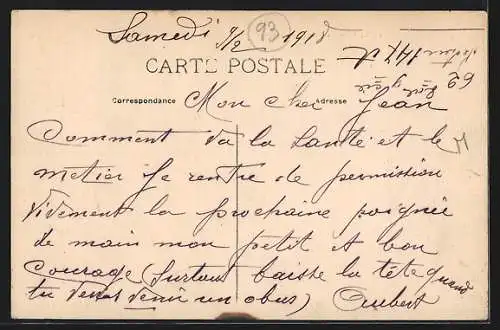 Samedi 9/2 1918
93
CARTE POSTALE
Correspondance Adresse
Mon cher Jean
Comment va la santé et le
metier Je rentre de permission
Vivement la prochaine poignée
de main mon petit et bon
courage (Surtout baisse la tete quand
tu verras venir un obus) Aubert